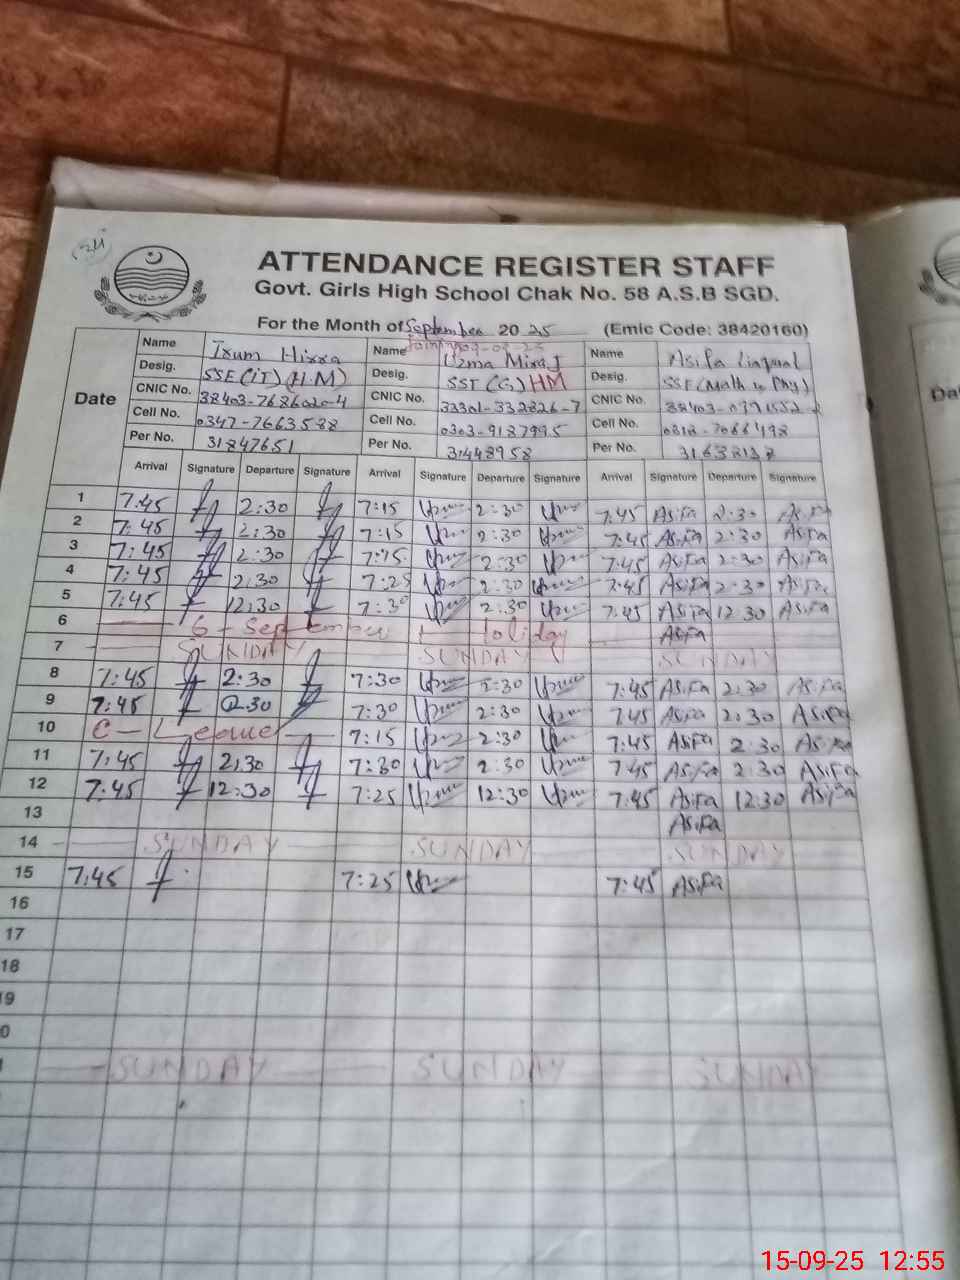 ATTENDANCE REGISTER STAFF
Govt. Girls High School Chak No. 58 A.S.B SGD.
For the Month of September 2025 (Emic Code: 38420160)
Date Name Irum Hirra Name Uzma Miraj Name Asifa
Desig. SSE(IT)(H.M) Desig. SST(G) HM Desig. SSE(Math & Phy)
CNIC No. CNIC No. CNIC No.
Cell No. 0347-7663588 Cell No. 0303-9187995 Cell No.
Per No. 31847651 Per No. 31448958 Per No.
Arrival Signature Departure Signature Arrival Signature Departure Signature Arrival Signature Departure Signature
1 7:45 2:30 7:15 2:30 7:45 Asifa 2:30 Asifa
2 7:45 2:30 7:15 2:30 7:45 Asifa 2:30 Asifa
3 7:45 2:30 7:15 2:30 7:45 Asifa 2:30 Asifa
4 7:45 2:30 7:25 2:30 7:45 Asifa 2:30 Asifa
5 7:45 12:30 7:30 2:30 7:45 Asifa 12:30 Asifa
6 6-September Holiday Asifa
7 SUNDAY SUNDAY SUNDAY
8 7:45 2:30 7:30 2:30 7:45 Asifa 2:30 Asifa
9 7:45 2:30 7:30 2:30 7:45 Asifa 2:30 Asifa
10 C-Leave 7:15 2:30 7:45 Asifa 2:30 Asifa
11 7:45 2:30 7:30 2:30 7:45 Asifa 2:30 Asifa
12 7:45 12:30 7:25 12:30 7:45 Asifa 12:30 Asifa
13 Asifa
14 SUNDAY SUNDAY SUNDAY
15 7:45 7:25 7:45 Asifa
16
17
18
19
SUNDAY SUNDAY SUNDAY
15-09-25 12:55